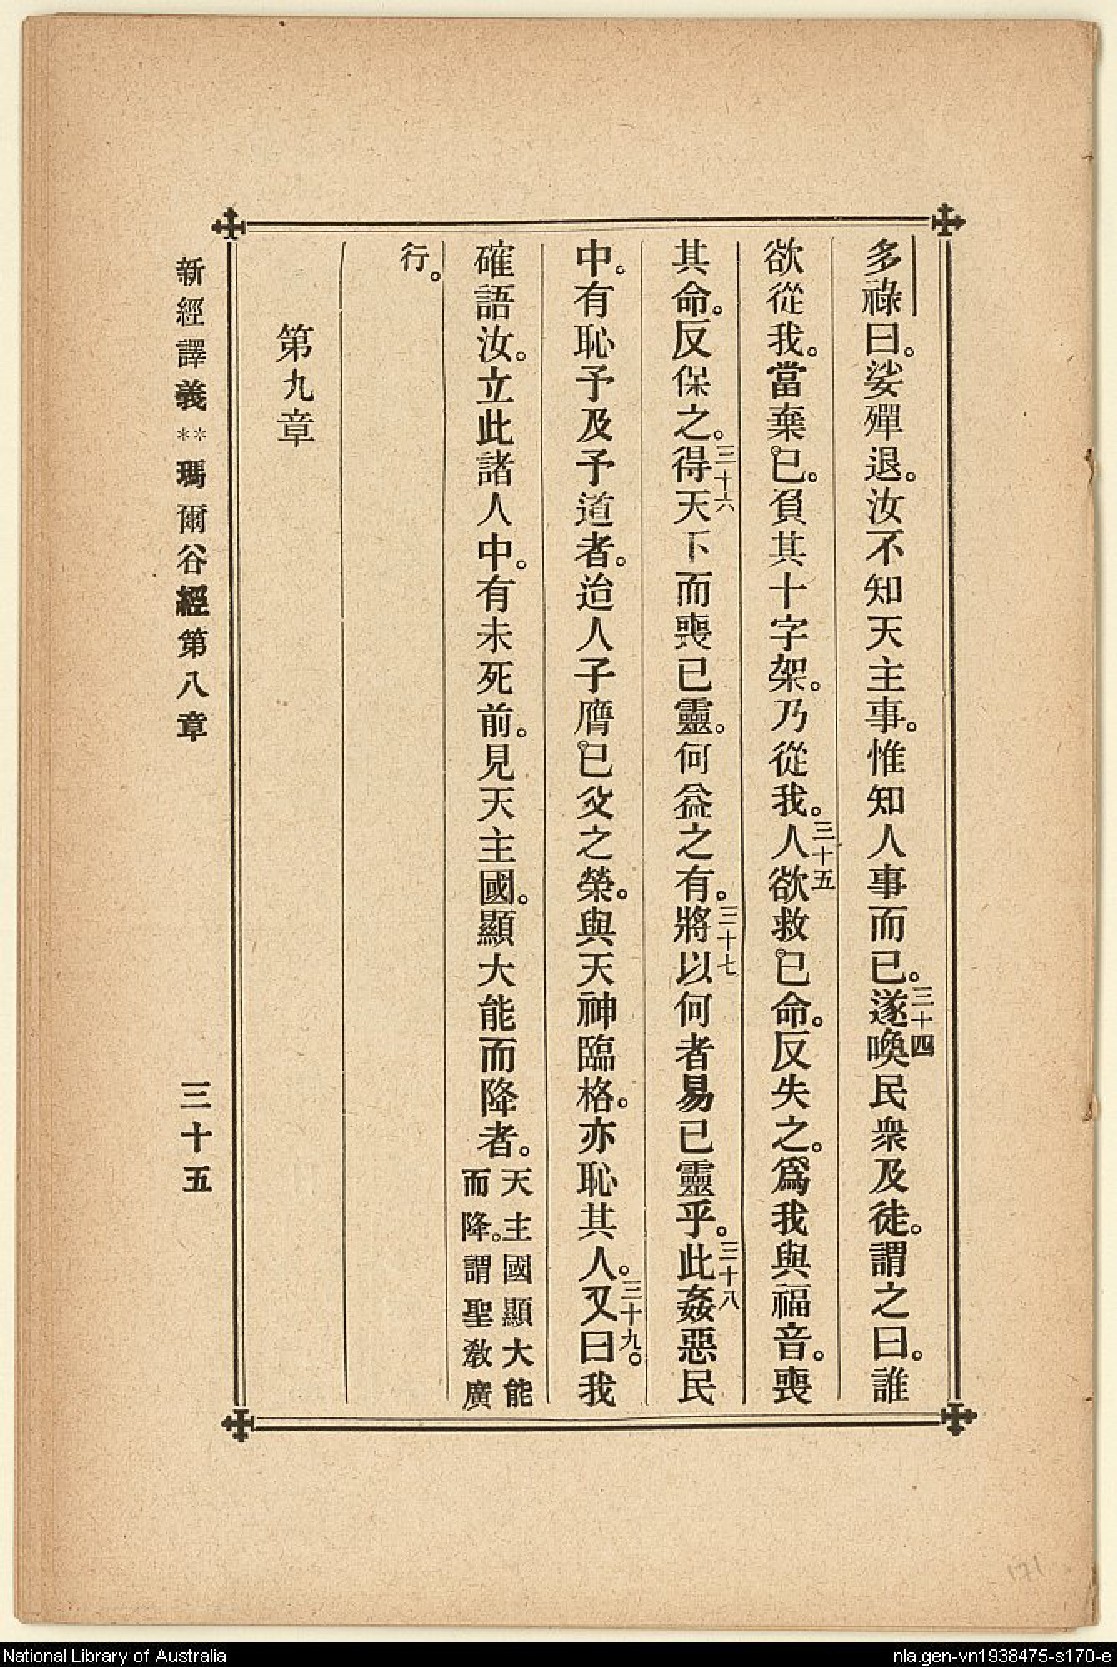 多祿曰。娑殫退。汝不知天主事。惟知人事而已。三十四遂喚民衆及徒。謂之曰。誰
欲從我。當棄己。負其十字架。乃從我。三十五人欲救己命。反失之。爲我與福音。喪
其命。反保之。三十六得天下而喪己靈。何益之有。三十七將以何者易己靈乎。三十八此姦惡民
中。有恥予及予道者。迨人子膺己父之榮。與天神臨格。亦恥其人。三十九。又曰我
確語汝。立此諸人中。有未死前。見天主國。顯大能而降者。
天主國顯大能
而降。謂聖教廣
行。
第九章
新經譯義**瑪爾谷經第八章 三十五
171
National Library of Australia
nla.gen-vn1938475-s170-e